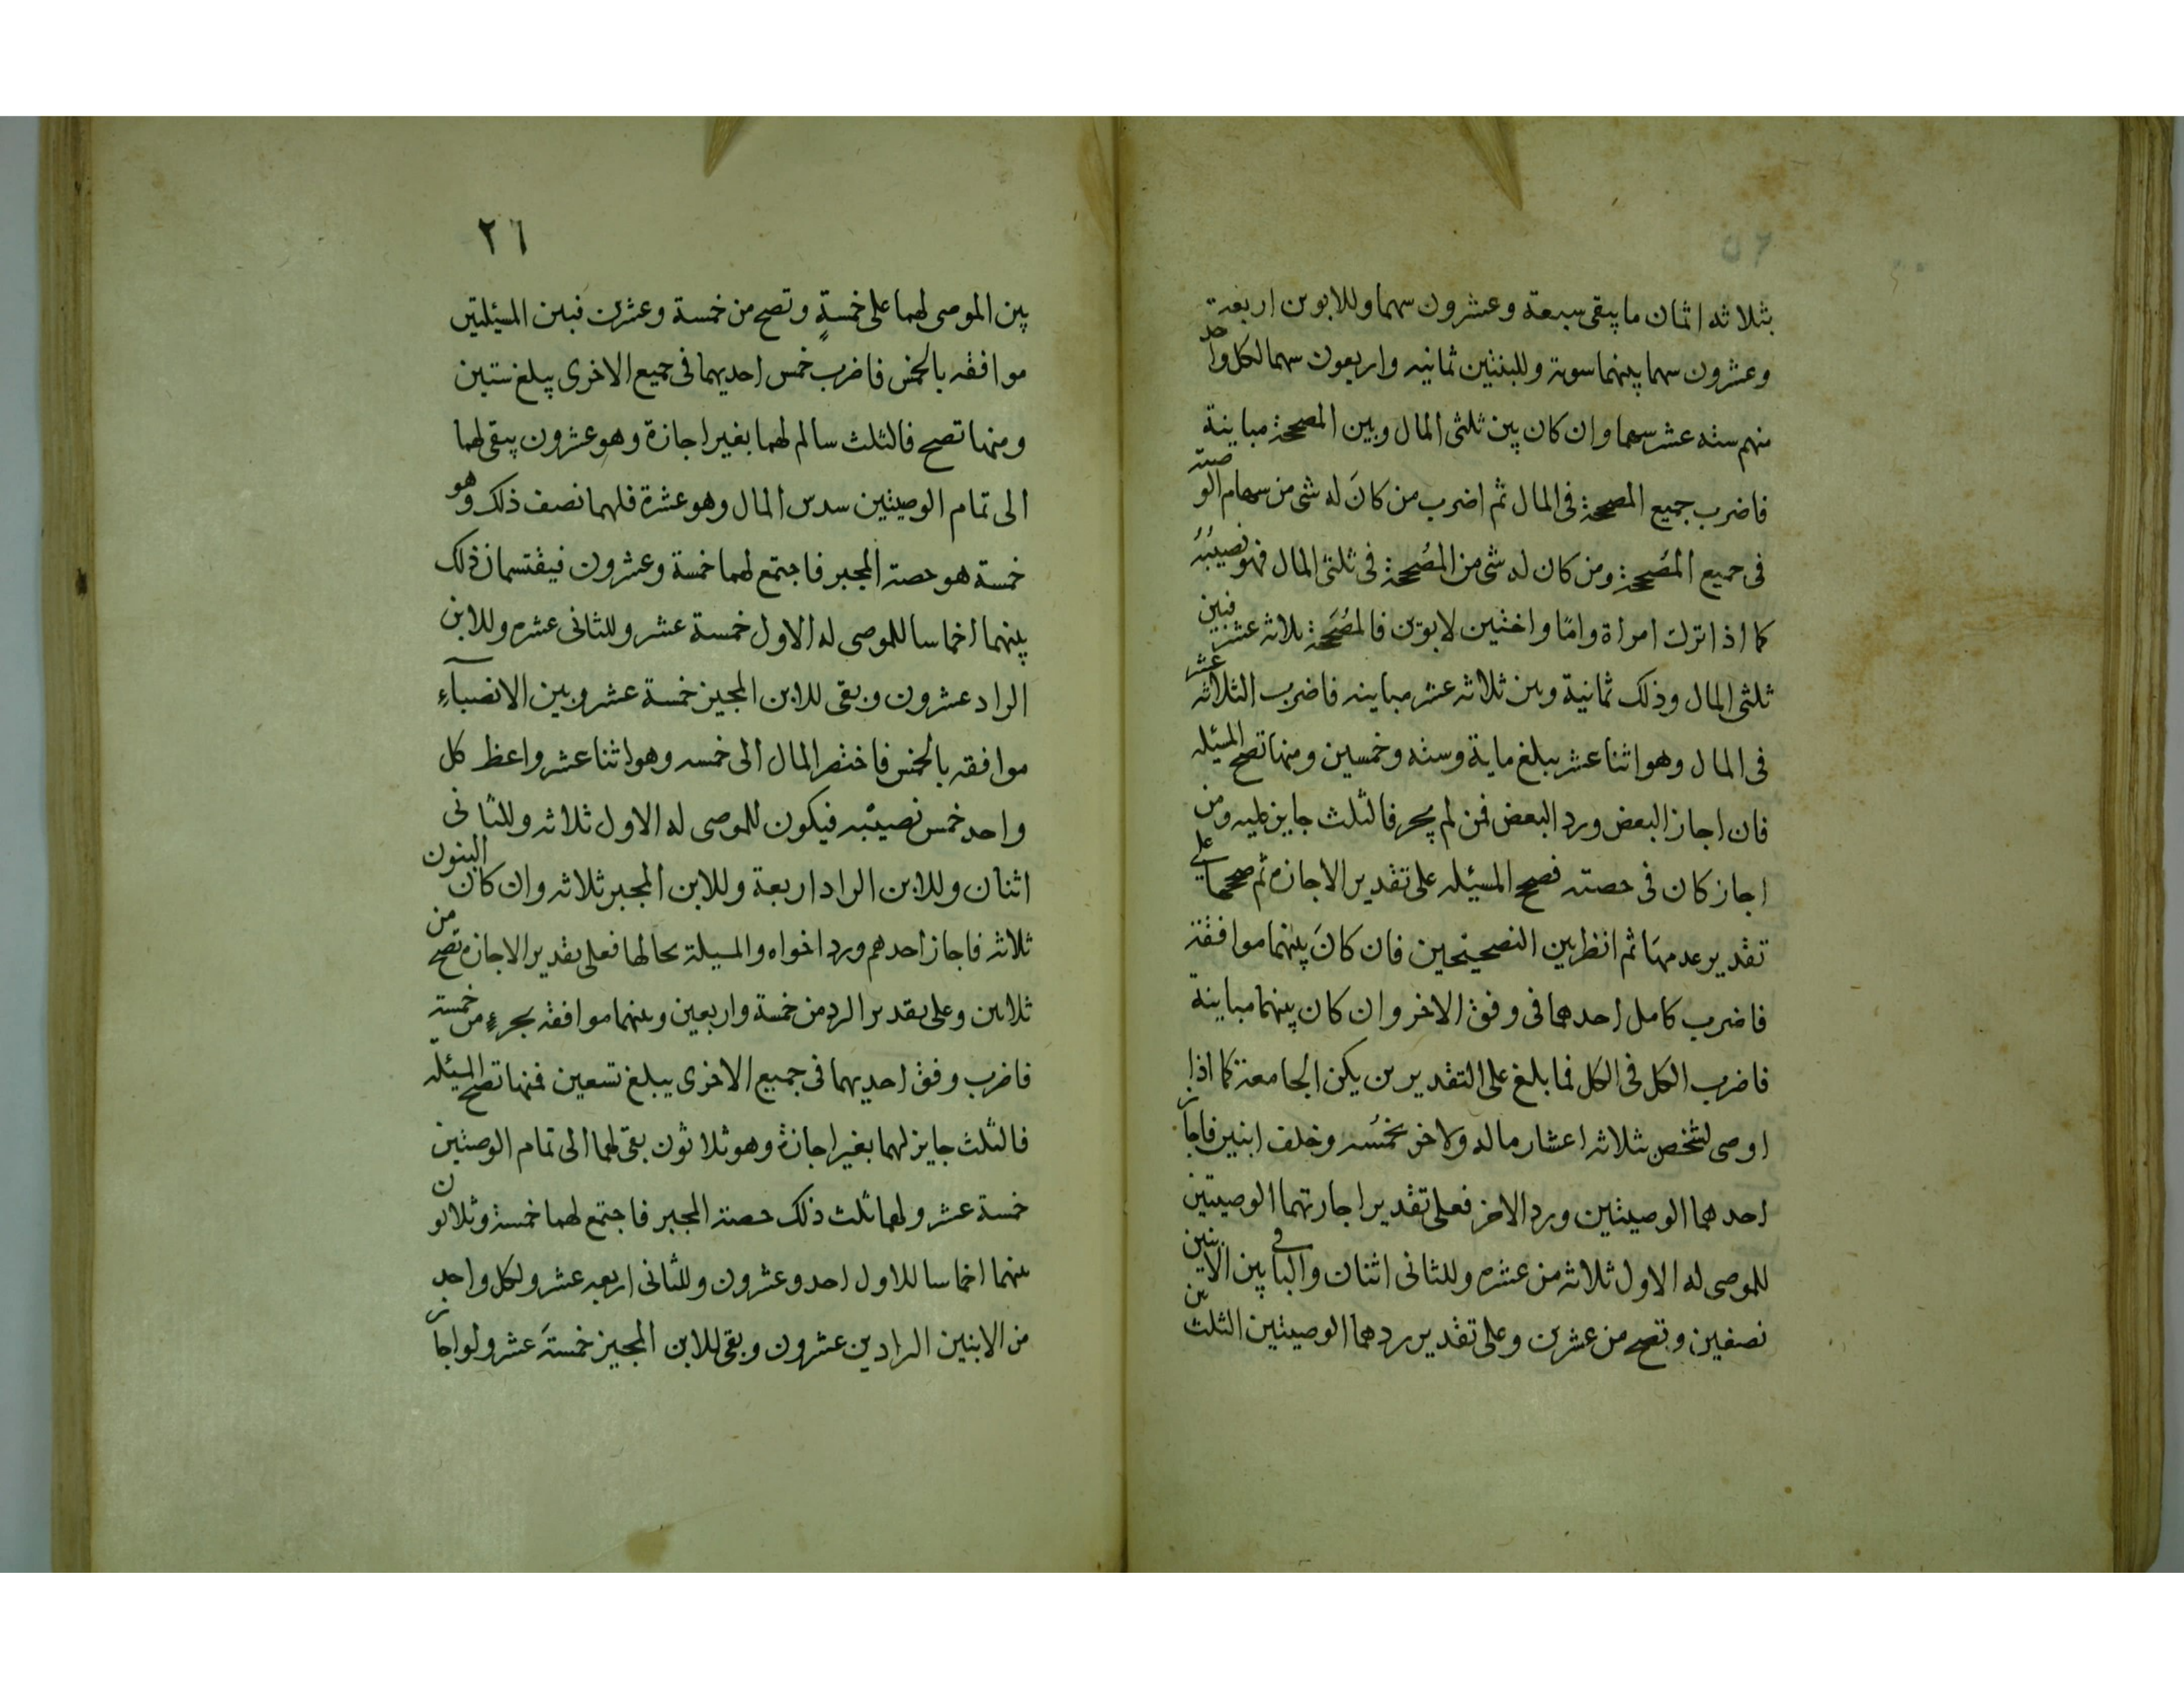 بثلاثه اثمان ما يبقى سبعة وعشرون سهما وللابوين اربعة
وعشرون سهما بينهما سوية وللبنتين ثمانيه واربعون سهما لكل واحد
منهم سته عشر سهما وان كان بين ثلثى المال وبين المصححة مباينة
فاضرب جميع المصححة فى المال ثم اضرب من كانَ له شى من سهام الوصية
فى جميع المُصححة ومن كان له شى من المُصححة فى ثلثى المال فهو نصيبُهُ
كما اذا ترك امراة وامًا واختين لابوين فالمُصَححة ثلاثه عشر فبين
ثلثى المال وذلك ثمانية وبين ثلاثه عشر مباينه فاضرب الثلاثه عشر
فى المال وهو اثنا عشر يبلغ ماية وسته وخمسين ومنها تصح المسئله
فان اجاز البعض ورد البعض فمن لم يجز فالثلث جايز عليه ومن
اجاز كان فى حصته فصحح المسيئله على تقدير الاجازه ثم صححها على
تقدير عدمهَا ثم انظر بين التصحيحين فان كانَ بينهما موافقة
فاضرب كامل احدهما فى وفق الاخر وان كان بينهما مباينة
فاضرب الكل فى الكل فما بلغ على التقديرين يكن الجامعة كما اذا
اوصى لشخص بثلاثه اعشار ماله ولاخر بخمُسه وخلف ابنين فاجاز
احدهما الوصيتين ورد الاخر فعلى تقدير اجازتهما الوصيتين
للموصى له الاول ثلاثه من عشره وللثانى اثنان والباقى بين الابنين
نصفين وتصح من عشرين وعلى تقدير ردهما الوصيتين الثلث
٢٦
بين الموصى لهما على خمسةٍ وتصح من خمسة وعشرين فبين المسئلتين
موافقه بالخمس فاضرب خمس احديهما فى جميع الاخرى يبلغ ستين
ومنها تصح فالثلث سالم لهما بغير اجازة وهو عشرون يبقى لهما
الى تمام الوصيتين سدس المال وهو عشرة فلهما نصف ذلك وهو
خمسة هو حصة المجيز فاجتمع لهما خمسة وعشرون فيقتسمان ذلك
بينهما اخماسا للموصى له الاول خمسة عشر وللثانى عشره وللابن
الراد عشرون وبقى للابن المجيز خمسة عشر وبين الانصباءِ
موافقه بالخمس فاختصر المال الى خمسه وهو اثنا عشر واعط كل
واحد خمس نصيبه فيكون للموصى له الاول ثلاثه وللثانى
اثنان وللابن الراد اربعة وللابن المجيز ثلاثه وان كان البنون
ثلاثه فاجاز احدهم ورد اخواه والمسيلة بحالها فعلى تقدير الاجازه تصح من
ثلاثين وعلى تقدير الرد من خمسة واربعين وبينهما موافقه بجزءٍ من خمسة
فاضرب وفق احديهما فى جميع الاخرى يبلغ تسعين فمنها تصح المسئله
فالثلث جايز لهما بغير اجازة وهو ثلاثون بقى لهما الى تمام الوصيتين
خمسة عشر ولهما ثلث ذلك حصة المجيز فاجتمع لهما خمسة وثلاثون
بينهما اخماسا للاول احد وعشرون وللثانى اربعه عشر ولكل واحد
من الابنين الرادين عشرون وبقى للابن المجيز خمسةَ عشر ولو اجاز